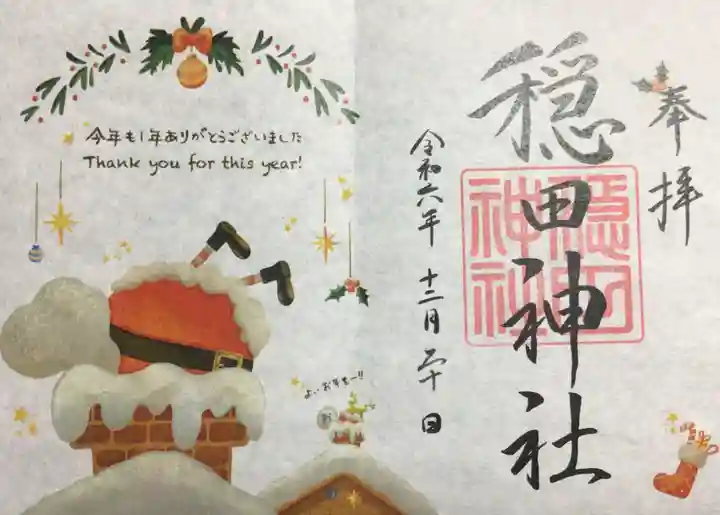 今年も1年ありがとうございました
Thank you for this year!
よいお年をー!!
奉拝
穏田神社
穏田神社
令和六年 十二月 二十日